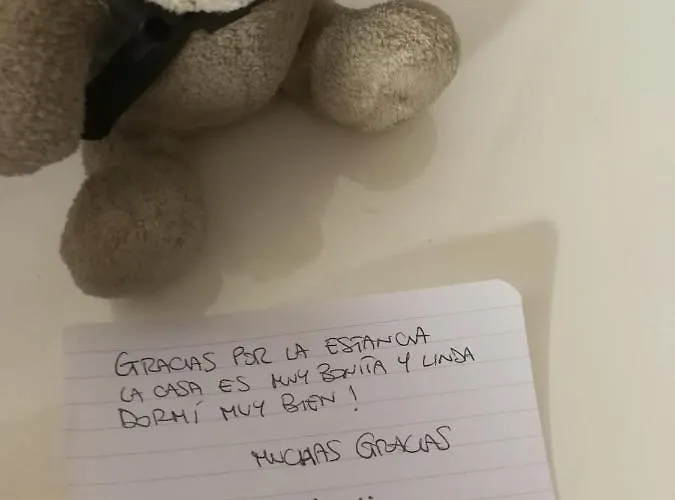 GRACIAS POR LA ESTANCIA
LA CASA ES MUY BONITA Y LINDA
DORMÍ MUY BIEN!
MUCHAS GRACIAS